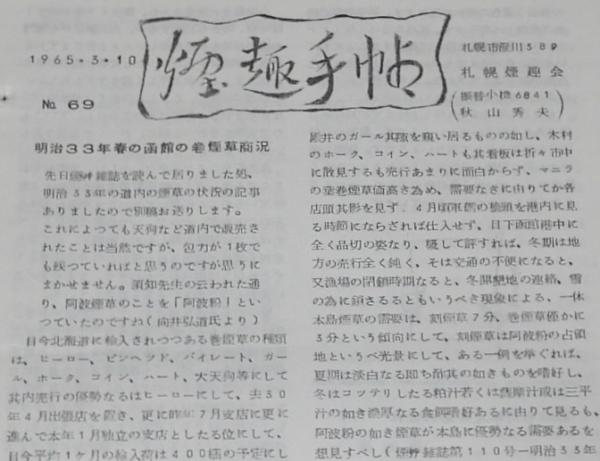 1965・3・10
№ 69
煙趣手帖
札幌市澄川389
札幌煙趣会
(振替小樽6841)
秋山秀夫
明治33年春の函館の巻煙草商況
先日煙草雑誌を読んで居りました処、
明治33年の道内の煙草の状況の記事
ありましたので別稿お送りします。
これによつても天狗など道内で販売さ
れたことは当然ですが、包力が1枚で
も残つていればと思うのですが思うに
まかせません。須知先生の云われた通
り、阿波煙草のことを「阿波粉」とい
つていたのですね(向井弘道氏より)
目今北海道に輸入されつつある巻煙草の種類
は、ヒーロー、ピンヘッド、パイレート、ガー
ル、ホーク、コイン、ハート、大天狗等にして
其内売行の優勢なるはヒーローにして、去30
年4月出張店を置き、更に昨年7月支店に更に
進んで本年1月独立の支店としたる位にして、
目今平均1ケ月の輸入荷は400個の予定にし
井のガール其隙を窺い居るものの如し、木村
のホーク、コイン、ハートも其看板は折々市中
に散見するも売行あまりに面白からず、マニラ
の葉巻煙草価高き為め、需要なきに由りてか各
店頭其影を見ず、4月頃軍艦の檣頭を港内に見
る時節にならざれば仕入せず、目下函館港中に
全く品切の姿なり、概して評すれば、冬期は地
方の売行全く鈍く、そは交通の不便になると、
又漁場の閉鎖時期なると、冬開墾地の連絡、雪
の為に鎖さるるともいうべき現象による、一体
本島煙草の需要は、刻煙草7分、巻煙草僅かに
3分という傾向にして、刻煙草は阿波粉の占領
地というべ光景にして、ある一例を挙ぐれば、
夏期は淡白なる即ち酢其の如きものを嗜好し、
冬はコツテリしたる粕汁若くは薩摩汁或は三平
汁の如き濃厚なる食餌嗜好あるに由りて見るも、
阿波粉の如き煙草が本島に優勢なる需要あるを
想見すべし(煙草雑誌第110号―明治33年